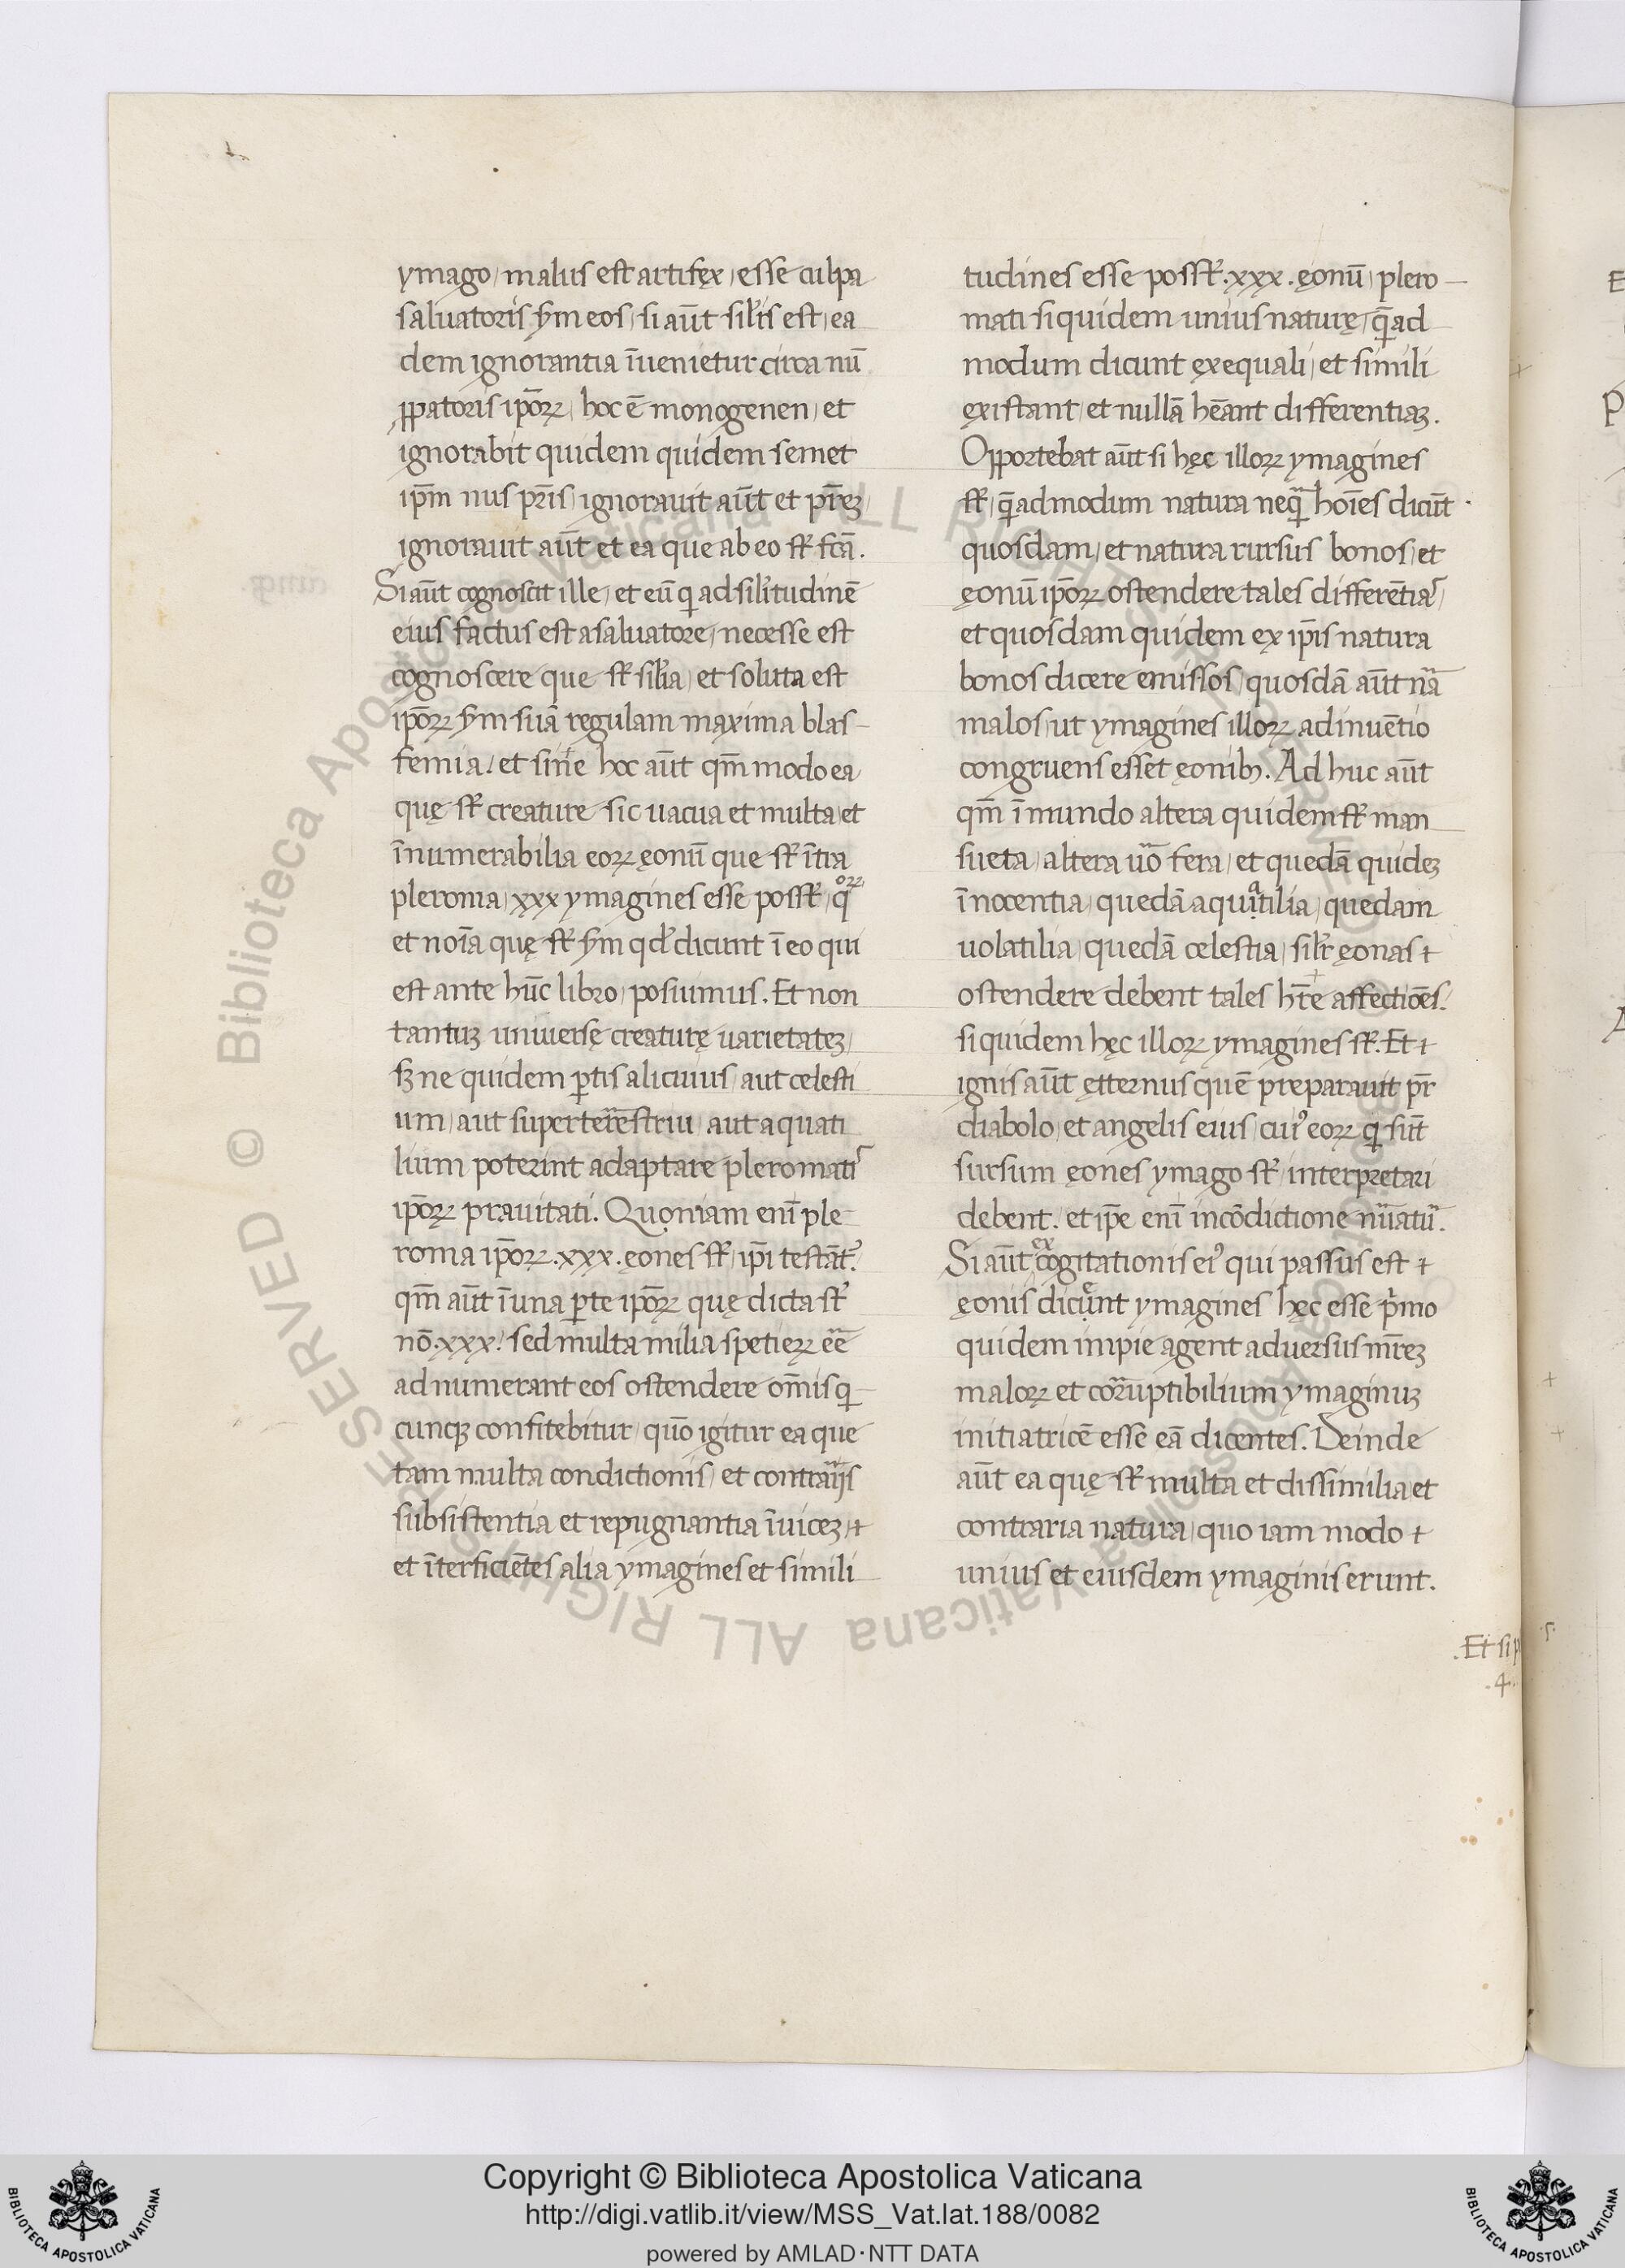 ymago, malus est artifex, esse culpa
saluatoris sm̄ eos, si aūt sil̄is est, ea
dem ignorantia īuenietur circa nū
ꝓpatoris ip̄oꝝ, hoc ē monogenen, et
ignorabit quidem quidem semet
ip̄m nus pr̄is, ignorauit aūt et pr̄eꝫ,
ignorauit aūt et ea que ab eo st̄ fc̄a.
Si aūt cognoscit ille, et eū q̄ ad sil̄itudinē
eius factus est a saluatore, necesse est
cognoscere que st̄ sil̄ia, et soluta est
ip̄oꝝ sm̄ suā regulam maxima blas-
femia. et sine hoc aūt qm̄ modo ea
quę st̄ creature sic uacua et multa, et
īnumerabilia eoꝝ ęonū que st̄ ītra
pleroma, xxx ymagines esse posst̄, qoꝝ
et noīa quę st̄ sm̄ qd̓ dicunt ī eo qui
est ante hūc libro, posiumus. Et non
tantuꝫ uniuersę creaturę uarietateꝫ,
sꝫ ne quidem ꝑtis alicuius, aut celesti
um, aut superterrestriu, aut aquati
lium poterint adaptare pleromati
ip̄oꝝ prauitati. Quoniam enī ple
roma ip̄oꝝ .xxx. ęones st̄, ip̄i testāt̓.
qm̄ aūt ī una ꝑte ip̄oꝝ quę dicta st̄
nō .xxx. sed multa milia spetieꝝ eē
adnumerant eos ostendere om̄is q̄
cunqꝫ confitebitur, quō igitur ea que
tam multa condictionis, et contrarijs
subsistentia et repugnantia īuiceꝫ, ⁊
et īterficiētes alia ymagines et simili
tudines esse posst̄ .xxx. ęonū, plero-
mati siquidem unius naturę, q̄ad
modum dicunt ex equali, et simili
existant, et nullā hēant differentiaꝫ.
Opportebat aūt si hęc illoꝝ ymagines
st̄, q̄admodum natura neq̄ hoīes dicūt
quosdam, et natura rursus bonos, et
ęonū ip̄oꝝ ostendere tales differētia,
et quosdam quidem ex ip̄is natura
bonos dicere emissos, quosdā aūt nā
malos, ut ymagines illoꝝ adinuētio
congruens esset ęonibꝫ. Ad huc aūt
qm̄ ī mundo altera quidem st̄ man
sueta, altera uō fera, et quedā quideꝫ
īnocentia, quedā aquatilia, quedam
uolatilia, quedā celestia, sil̄r ęonas ⁊
ostendere debent tales hr̄e affectiōes.
siquidem hęc illoꝝ ymagines st̄. Et ⁊
ignis aūt ętternus quē preparauit pr̄
diabolo, et angelis eius, cui̓ eoꝝ q̄ sūt
sursum ęones ymago st̄, interpretari
debent. et ip̄e enī in cōdictione nūatu̅.
Si aūt ex cogitationis ei̓ qui passus est ⁊
ęonis dicent ymagines hęc esse pͥmo
quidem impie agent aduersus mr̄eꝫ
maloꝝ et corruptibilium ymaginuꝫ
initiatricē esse eā dicentes. Deinde
aūt ea quę st̄ multa et dissimilia, et
contraria natura, quo iam modo ⁊
unius et eiusdem ymaginis erunt.
Et si p
.4.
Copyright © Biblioteca Apostolica Vaticana
http://digi.vatlib.it/view/MSS_Vat.lat.188/0082
powered by AMLAD·NTT DATA
© Biblioteca Apostolica Vaticana ALL RIGHTS RESERVED
BIBLIOTECA APOSTOLICA VATICANA
BIBLIOTECA APOSTOLICA VATICANA